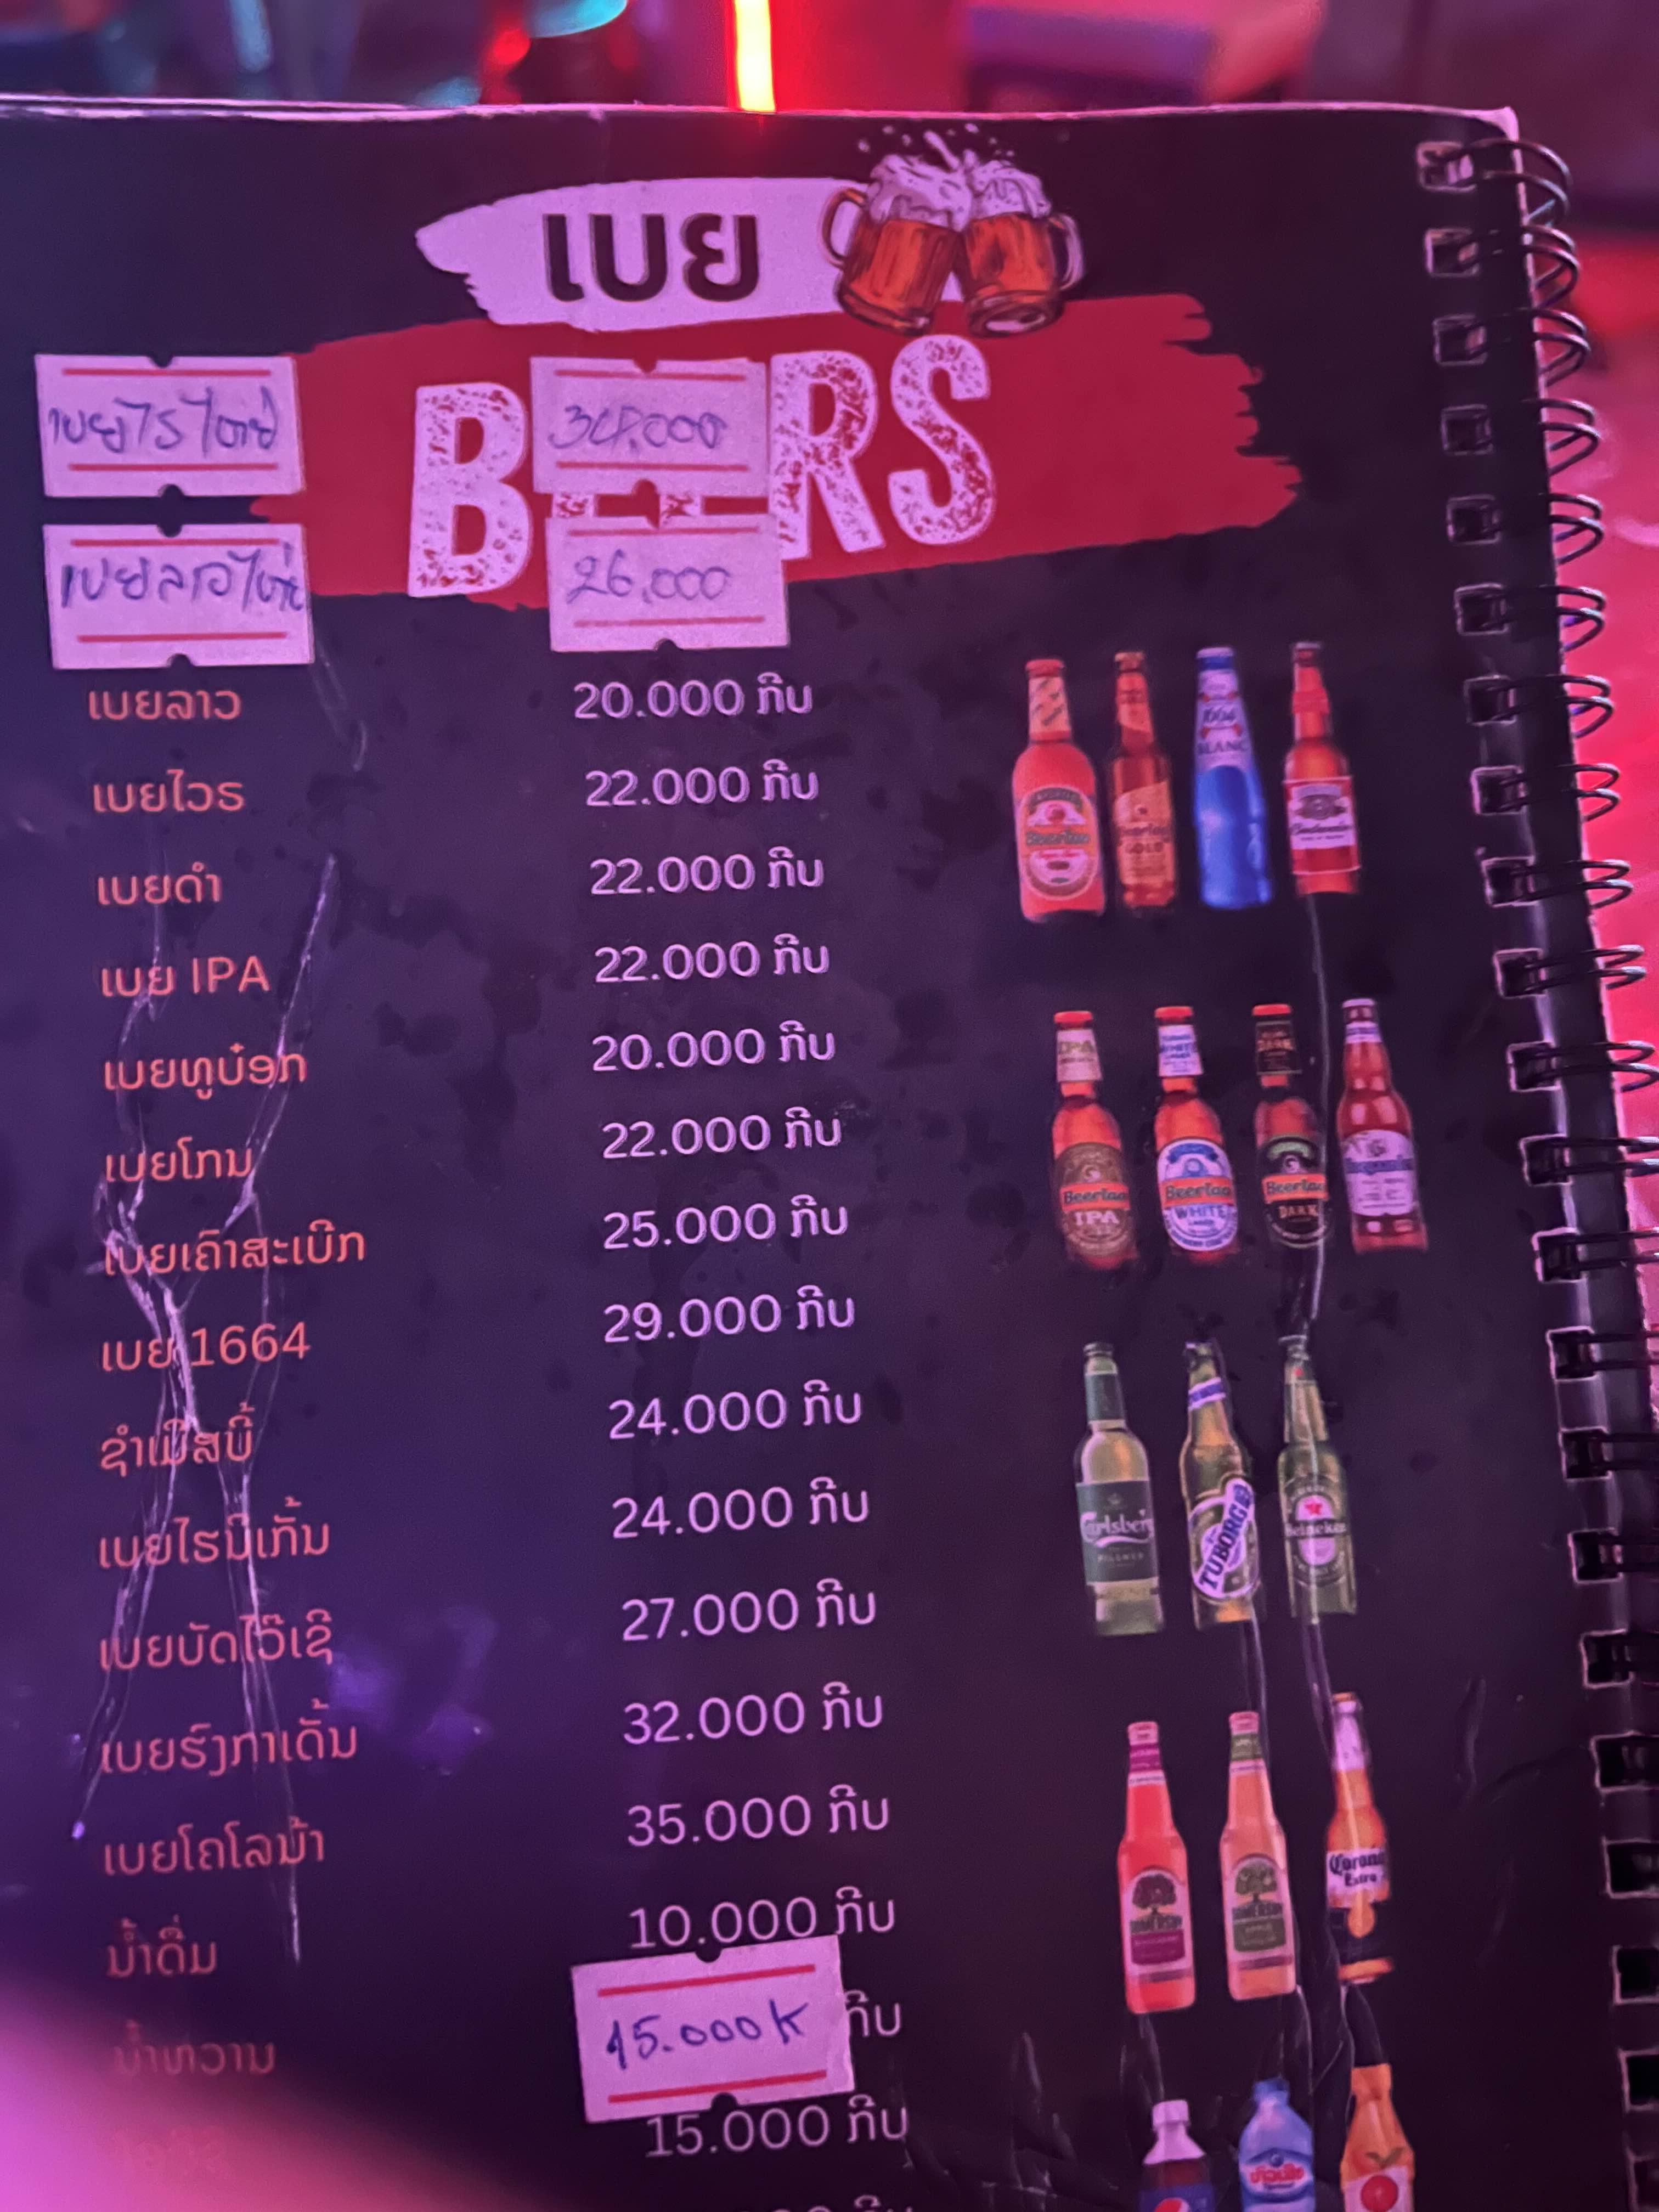 ເບຍ
BEERS
34,000
ເບຍລາວໃຫຍ່ 26,000
ເບຍລາວ 20.000 ກີບ
ເບຍໄວຣ 22.000 ກີບ
ເບຍດຳ 22.000 ກີບ
ເບຍ IPA 22.000 ກີບ
ເບຍທູບ໋ອກ 20.000 ກີບ
ເບຍໂກນ 22.000 ກີບ
ເບຍເຄົາສະເບີກ 25.000 ກີບ
ເບຍ 1664 29.000 ກີບ
ຊຳເມີສບີ້ 24.000 ກີບ
ເບຍໄຮນີເກັ້ນ 24.000 ກີບ
ເບຍບັດໄວ໊ເຊີ 27.000 ກີບ
ເບຍຮົງກາເດັ້ນ 32.000 ກີບ
ເບຍໂຄໂລນ້າ 35.000 ກີບ
ນ້ຳດື່ມ 10.000 ກີບ
ນ້ຳຫວານ 15.000 K ກີບ
15.000 ກີບ
Beerlao
Beerlao
GOLD
1664
BLANC
Budweiser
IPA
DARK
Beerlao
IPA
Beerlao
WHITE
Beerlao
DARK
Carlsberg
PILSNER
TUBORG
Heineken
SOMERSBY
SOMERSBY
APPLE
Corona
Extra